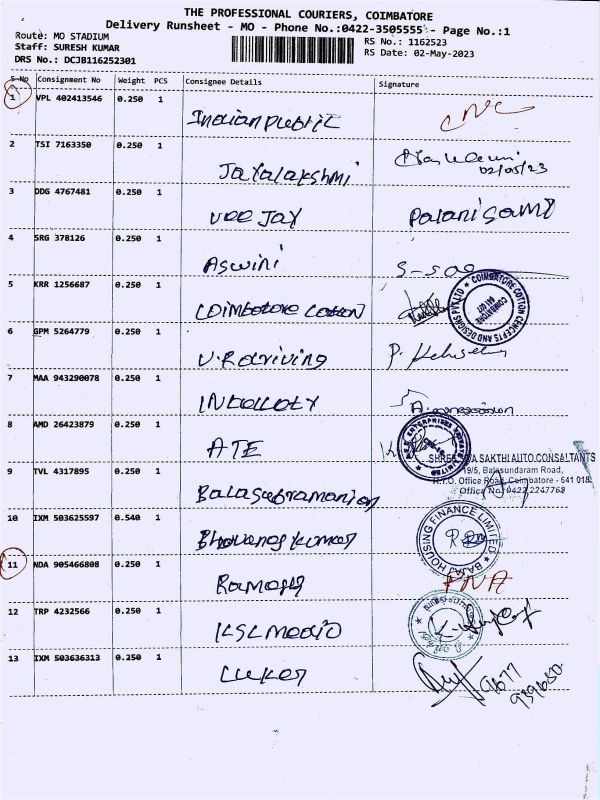 THE PROFESSIONAL COURIERS, COIMBATORE
Delivery Runsheet - MO - Phone No.:0422-3505555 - Page No.:1
Route: MO STADIUM
Staff: SURESH KUMAR
DRS No.: DCJB116252301
RS No.: 1162523
RS Date: 02-May-2023
S No Consignment No Weight PCS Consignee Details Signature
1 VPL 402413546 0.250 1 Indian public
2 TSI 7163350 0.250 1 Jayalakshmi
02/05/23
3 DDG 4767481 0.250 1 vee Jay Palanisamy
4 SRG 378126 0.250 1 Aswini
5 KRR 1256687 0.250 1 Coimbatore Cotton
COIMBATORE COTTON CONCEPTS AND DESIGNS PVT LTD
COIMBATORE
641 037
6 GPM 5264779 0.250 1 V.R driving
7 MAA 943290078 0.250 1
8 AMD 26423879 0.250 1 ATE
SHREE SIVA SAKTHI AUTO CONSULTANTS
19/5, Balasundaram Road,
R.T.O. Office Road, Coimbatore - 641 018.
Office No: 0422 2247763
9 TVL 4317895 0.250 1 Balasubramanian
10 IXM 503625597 0.540 1
BAJAJ HOUSING FINANCE LIMITED
11 NDA 905466808 0.250 1 Ramesh
12 TRP 4232566 0.250 1 KSL Media
13 IXM 503636313 0.250 1
9677